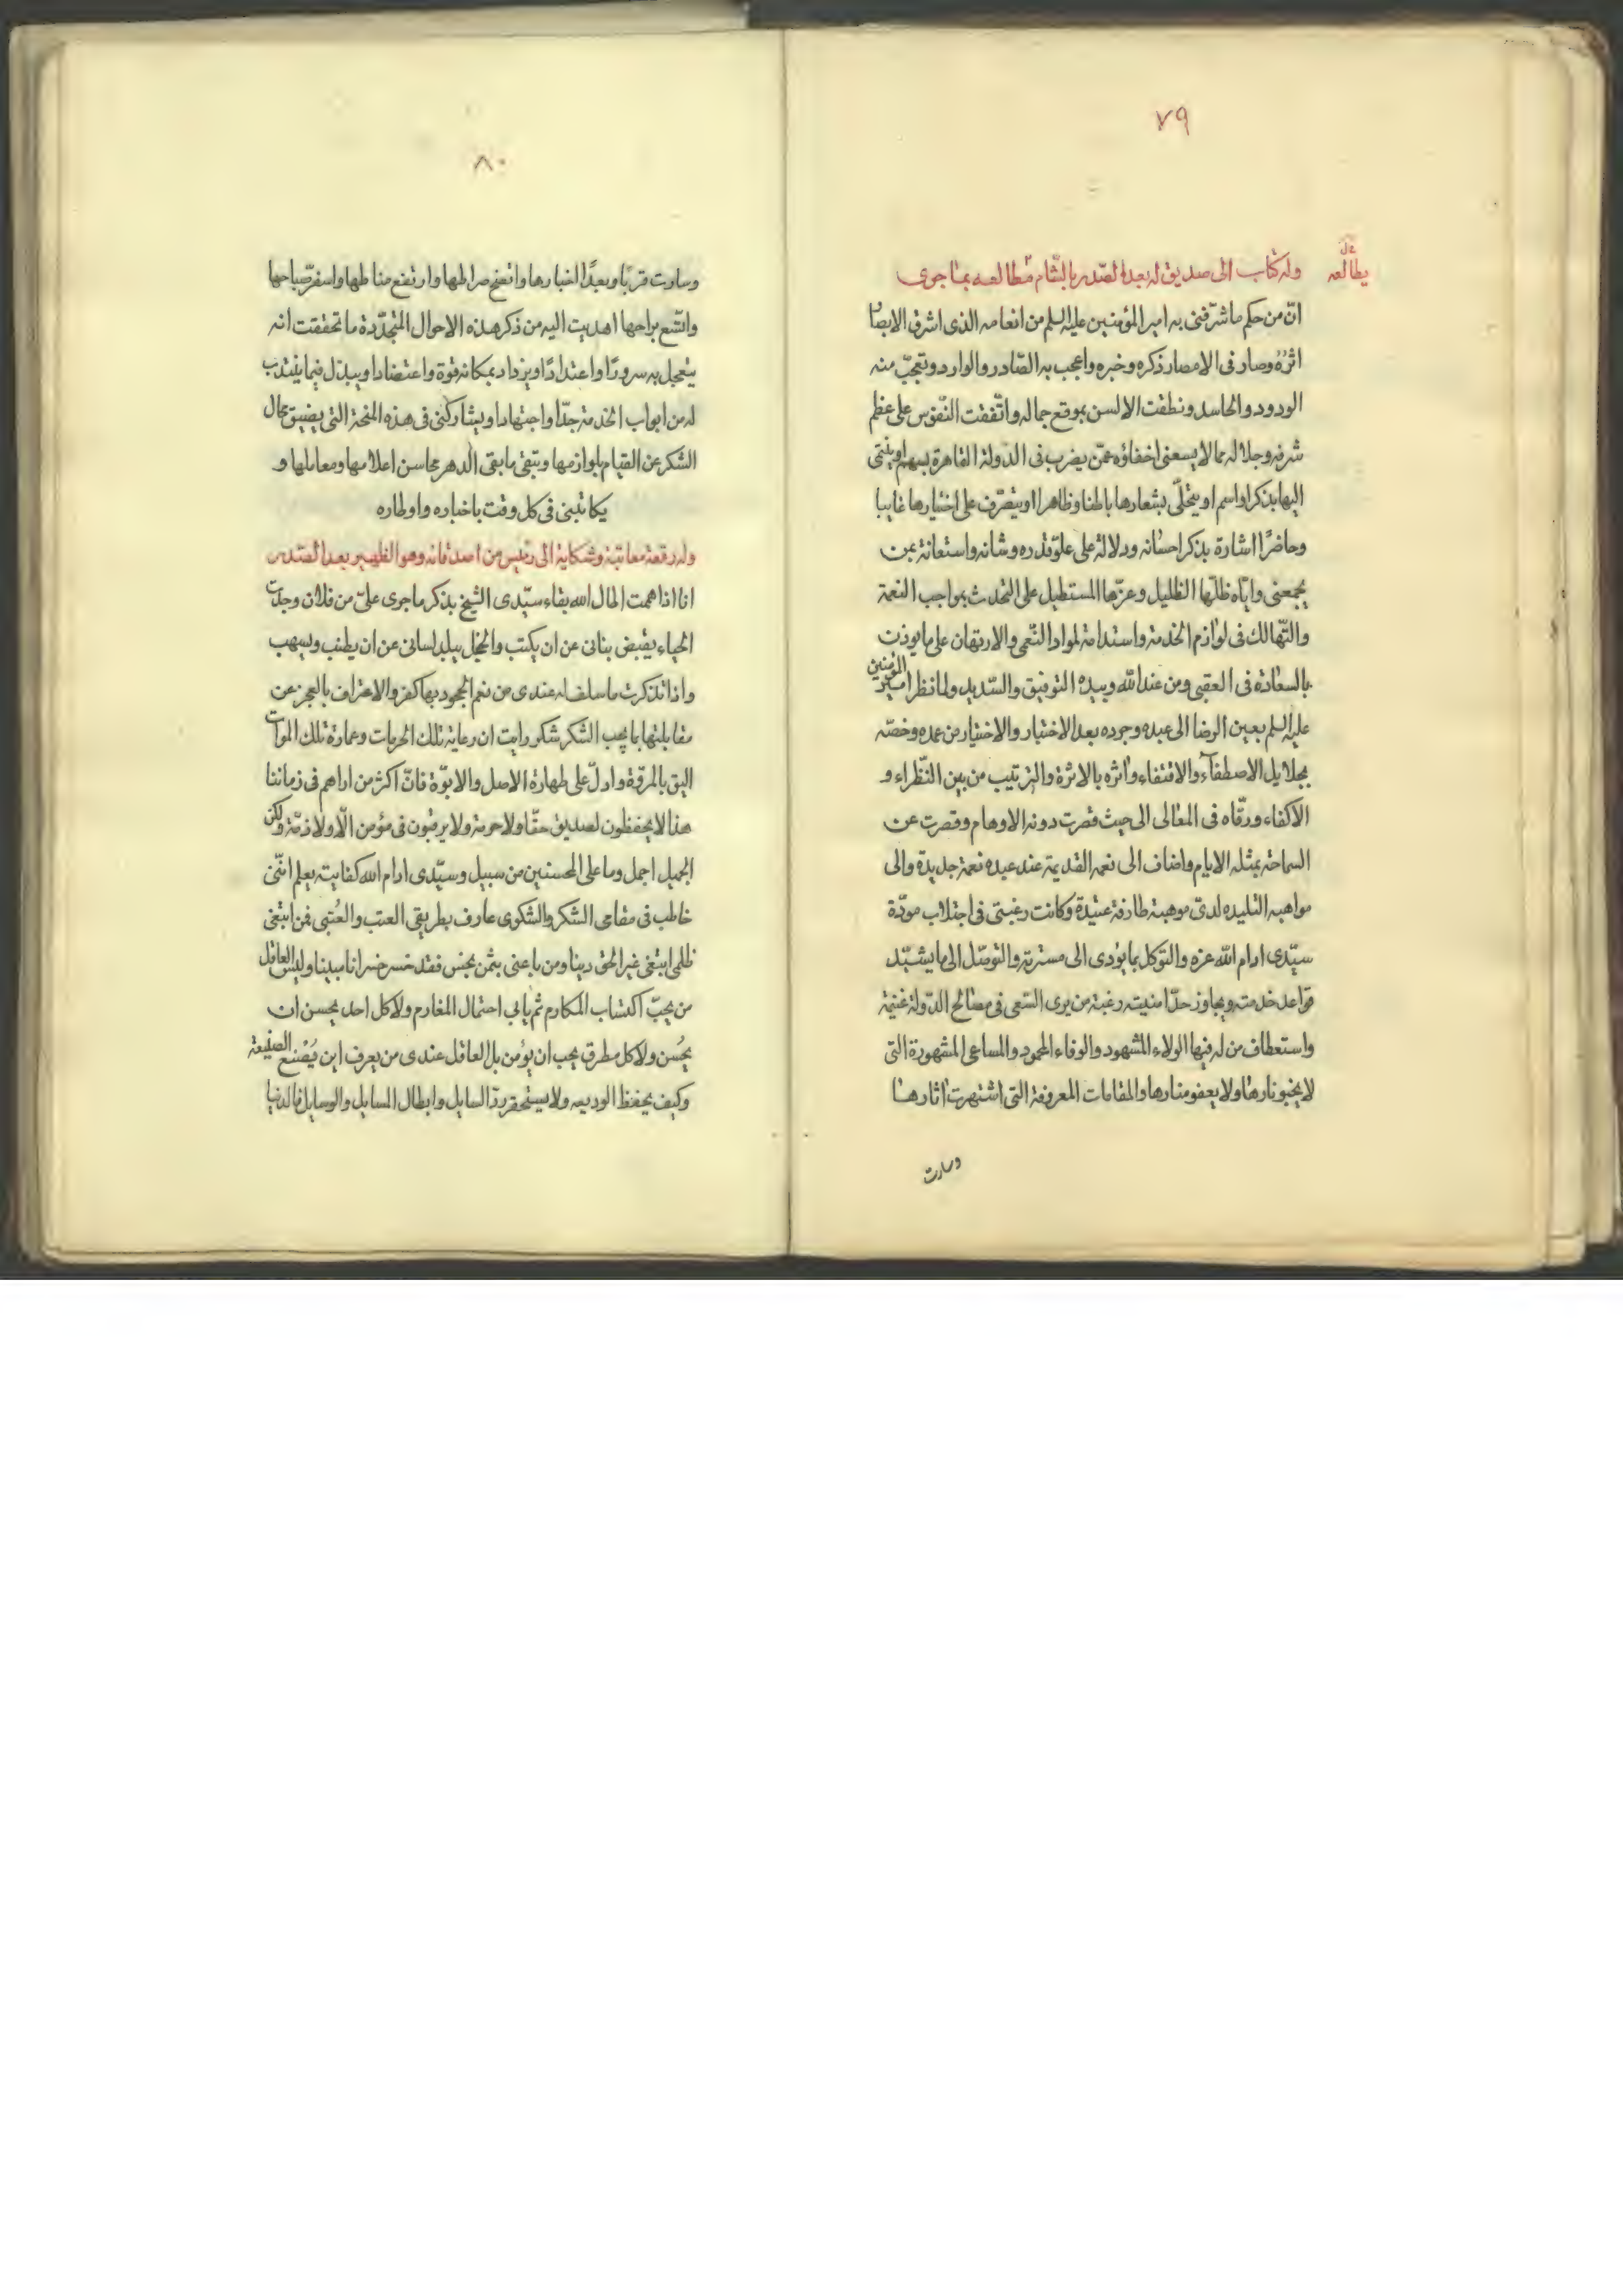 ٧٩
يطالعه
وله كتاب الى صديق له بعد الصدر بالشام مطالعه بما جرى
انّ من حكم ما شرّفنى به امير المؤمنين عليه السلم من انعامه الذى اشرق الابصار
اثره وصار فى الامصار ذكره وخبره واعجب به الصّادر والوارد وتعجّب منه
الودود والحاسد ونطقت الالسن بموقع جماله واتّفقت النّفوس على عظم
شرفه وجلاله مما لا يسعنى اخفاؤه عمّن يضرب فى الدولة القاهرة بسهم او ينتمى
اليها بذكر او اسم او يتحلّى بشعارها باطنا وظاهرا او يتصرّف على اختيارها غايبا
وحاضرًا اشارة بذكر احسانه ودلالة على علوّ قدره وشانه واستعانة بمن
يجمعنى واياه ظلّها الظليل وعزّها المستطيل على التحدث بمواجب النعمة
والتّهالك فى لوازم الخدمة واستدامة لمواد النّعمى والارتهان على ما يوذن
بالسعادة فى العقبى ومن عند الله وبيده التوفيق والسّديد ولما نظر امير المؤمنين
عليه السلم بعين الرضا الى عبده وجرده بعد الاختبار والاختيار من عمده وخصّه
بجلايل الاصطفآء والاقتفاء واثره بالاثرة والترتيب من بين النّظراء و
الاكفاء ورقّاه فى المعالى الى حيث قصرت دونه الاوهام وقصرت عن
السماحة بمثله الايام واضاف الى نعمه القديمة عند عبده نعمة جديدة والى
مواهبه التليده لدىّ موهبة طارفة عتيدة وكانت رغبتى فى اجتلاب مودّة
سيّدى ادام الله عزه والتوكل بما يؤدى الى مسترته والتوصّل الى ما يشيّد
قواعد خدمته ويجاوز حدّ امنيته رغبة من يرى السّعى فى مصالح الدّولة غنيمة
واستعطاف من له فيها الولاء المشهود والوفاء المحمود والمساعى المشهورة التى
لا يخبو نارها ولا يعفو منارها والمقامات المعروفة التى اشتهرت اثارها
وسارت
٨٠
وسارت قربًا وبعدًا اخبارها واتضح صراطها وارتفع مناطها واسفر صباحها
واتّسع براحها اهديت اليه من ذكر هذه الاحوال المتجدّدة ما تحققت انه
يتعجل به سرورًا واعتدادًا ويزداد بمكانه قوة واعتضادا ويبذل فيما ينتدب
له من ابواب الخدمة جدّا واجتهادا ويشاركنى فى هذه المنحة التى يضيق مجال
الشكر عن القيام بلوازمها وتبقى ما بقى الدهر محاسن اعلامها ومعاملها و
يكاتبنى فى كل وقت باخباره واوطاره
وله رقعة معاتبة وشكاية الى رئيس من اصدقائه وهو الظهير بعد الصدر
انا اذا هممت اطال الله بقاء سيّدى الشيخ بذكر ما جرى علىّ من فلان وجدت
الحياء يقبض بنانى عن ان يكتب والخجل يبلد لسانى عن ان يطنب ويسهب
واذا تذكرت ما سلف له عندى من نعم الجحود بها كفر والاعتراف بالعجز عن
مقابلتها بما يجب الشكر شكر رايت ان رعاية تلك الحرمات وعمارة تلك الموات
اليق بالمروّة وادلّ على طهارة الاصل والابوّة فانّ اكثر من اراهم فى زماننا
هذا لا يحفظون لصديق حقّا ولا حرمة ولا يرقبون فى مؤمن الّا ولا ذمّة ولكن
الجميل اجمل وما على المحسنين من سبيل وسيّدى ادام الله كفايته يعلم انّنى
خاطب فى مقامى الشكر والشكوى عارف بطريقى العتب والعُتبى فمن ابتغى
ظلمى ابتغى غير الحق دينا ومن باعنى بثمن بخس فقد خسر خسرانا مبينا وليس العاقل
من يحبّ اكتساب المكارم ثم يابى احتمال المغارم ولا كل احد يحسن ان
يحُسن ولا كل مطرق يجب ان يؤمن بل العاقل عندى من يعرف اين يَصْنع الصنيعة
وكيف يحفظ الوديعه ولا يستحقر ردّ السايل وابطال المسايل والوسايل فالدنيا